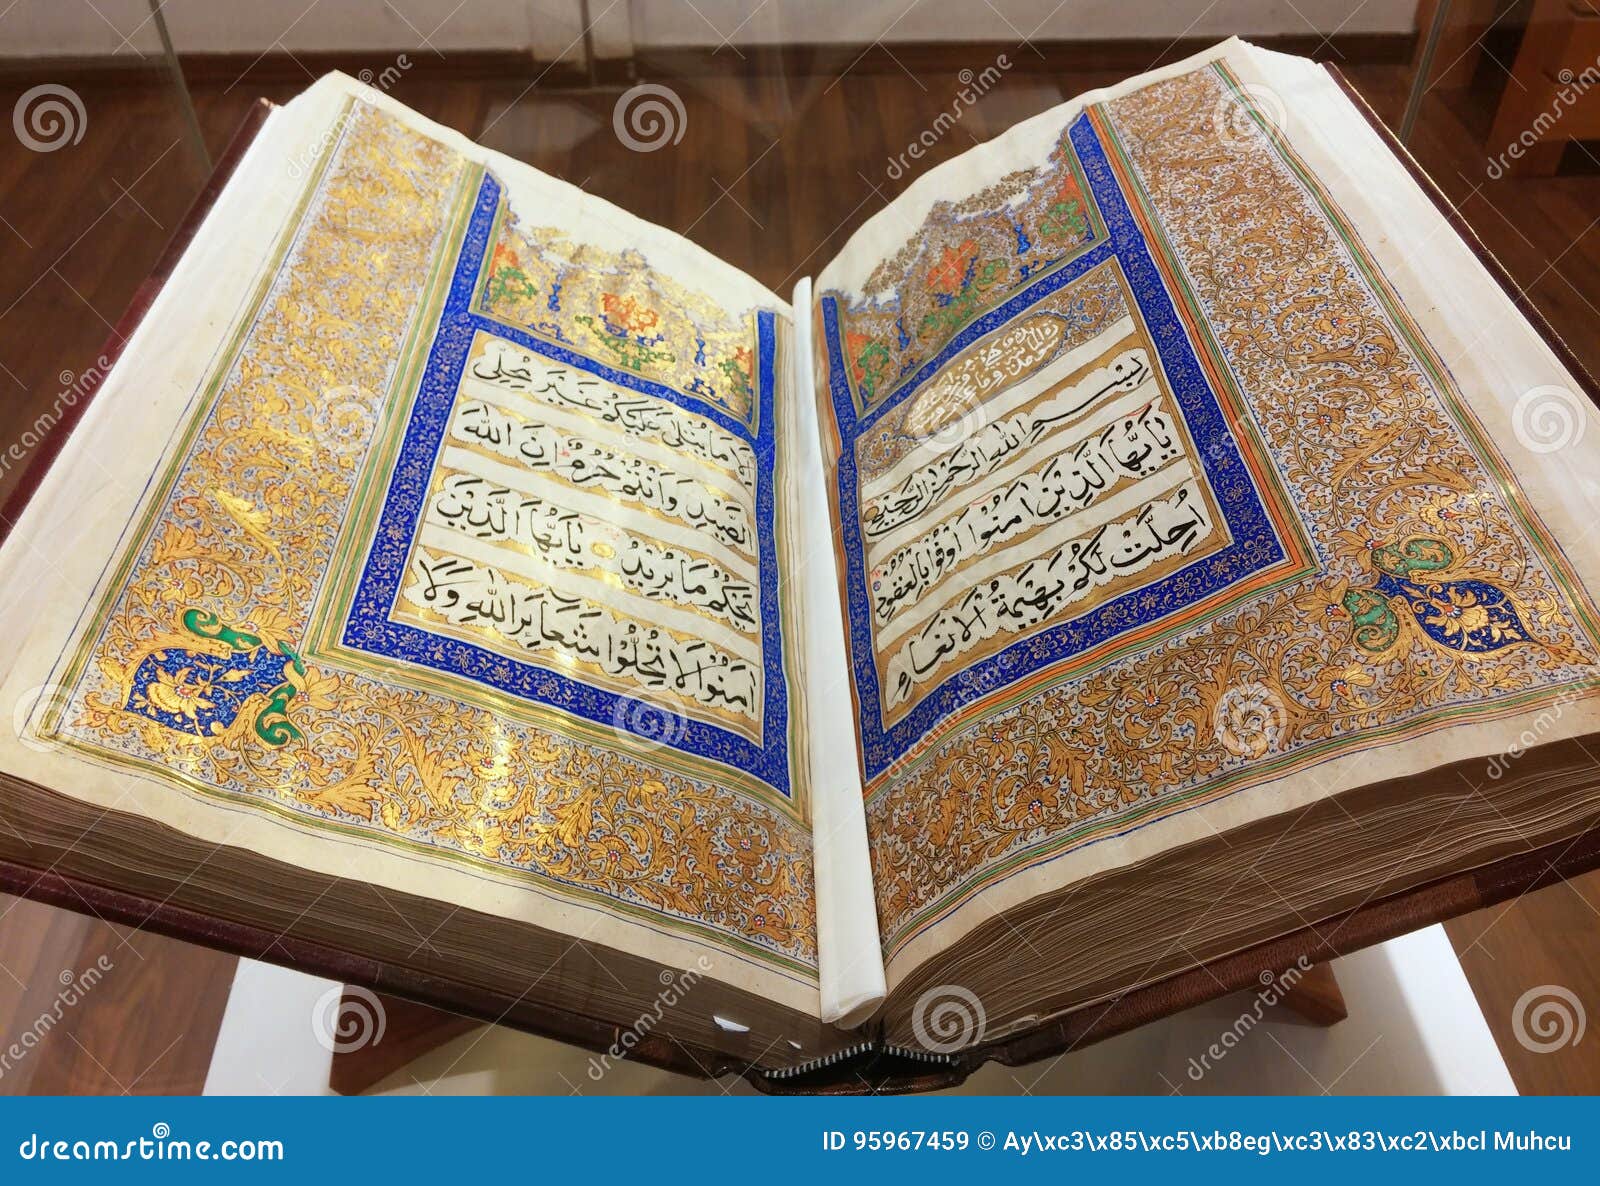 بسم الله الرحمن الرحيم
يا ايها الذين امنوا اوفوا بالعقود
احلت لكم بهيمة الانعام
الا ما يتلى عليكم غير محلى
الصيد وانتم حرم ان الله
يحكم ما يريد يا ايها الذين
امنوا لا تحلوا شعائر الله ولا
dreamstime.com
ID 95967459 © Ay\xc3\x85\xc5\xb8eg\xc3\x83\xc2\xbcl Muhcu